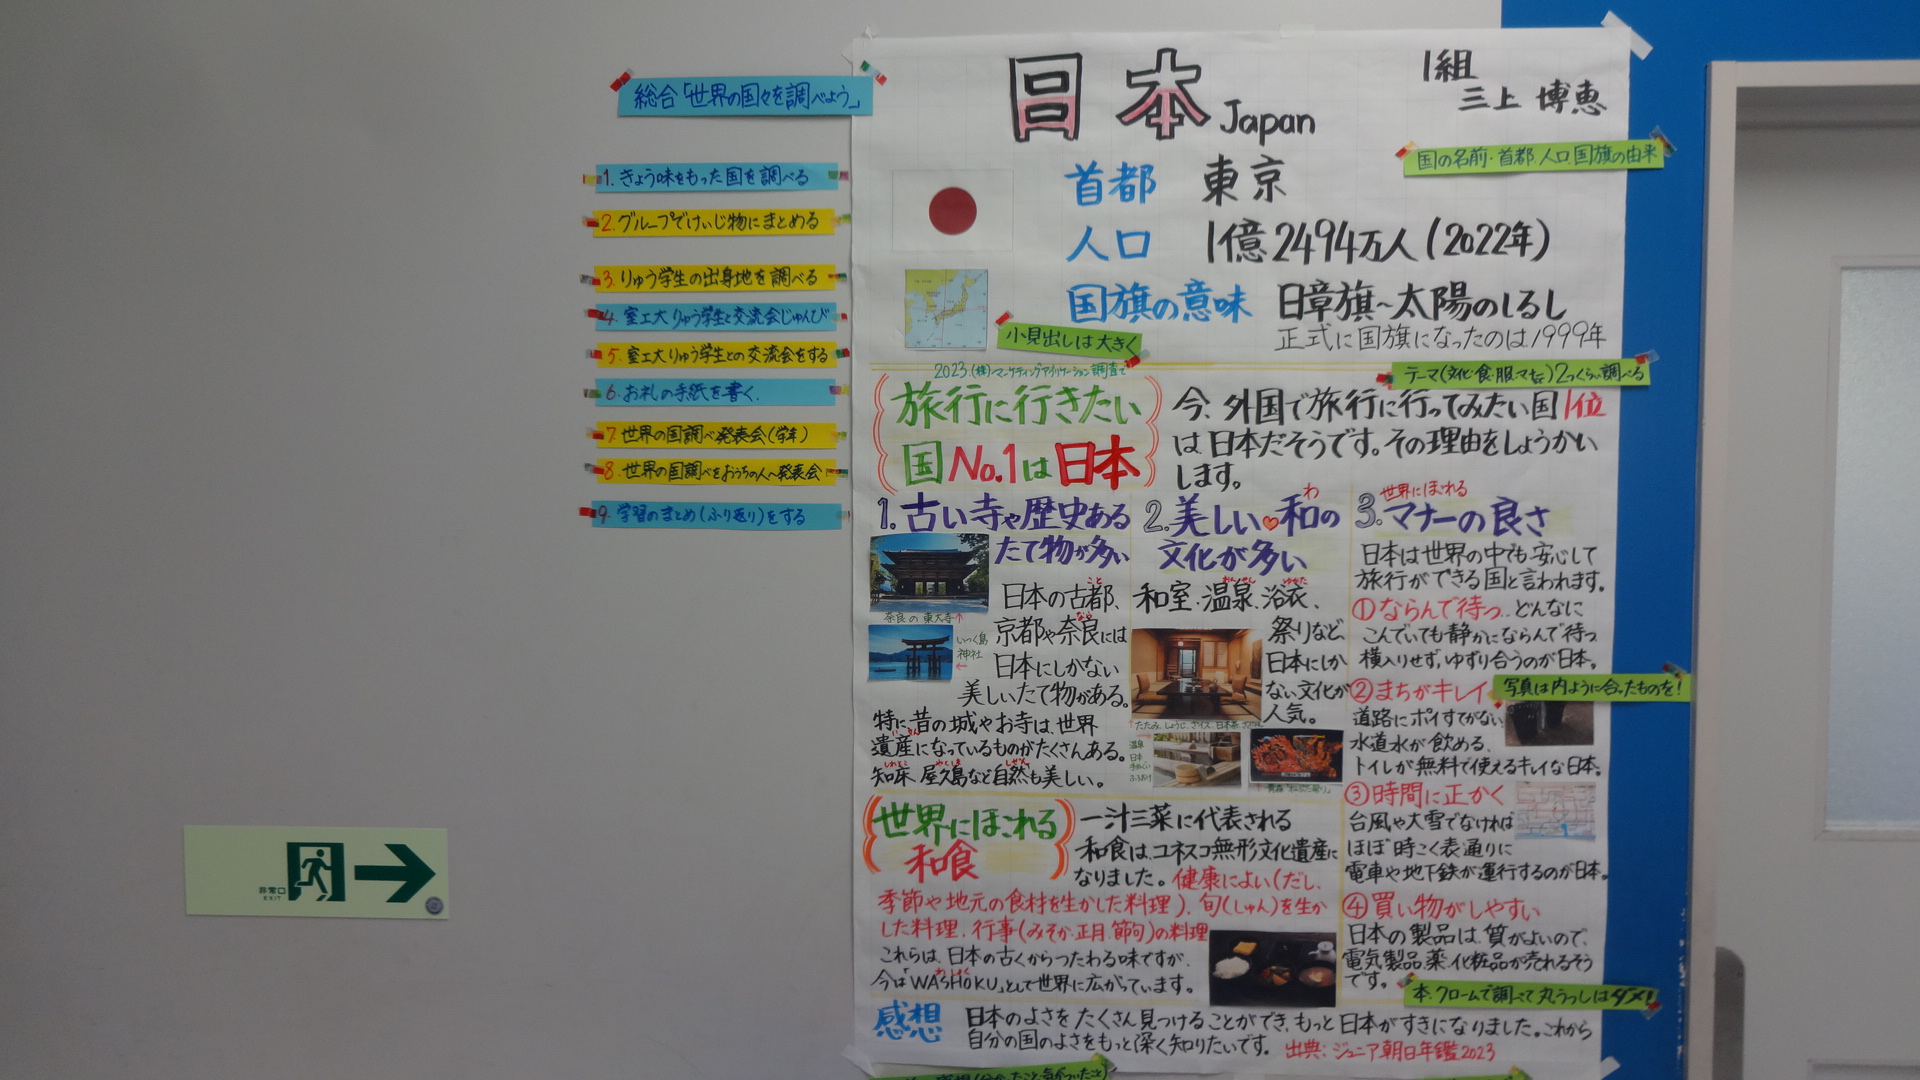 総合「世界の国々を調べよう」
1. きょう味をもった国を調べる
2. グループでけいじ物にまとめる
3. りゅう学生の出身地を調べる
4. 室工大りゅう学生と交流会じゅんび
5. 室工大りゅう学生との交流会をする
6. お礼の手紙を書く.
7. 世界の国調べ発表会(学年)
8. 世界の国調べをおうちの人へ発表会
9. 学習のまとめ(ふり返り)をする
非常口
EXIT
日本 Japan
1組
三上 博恵
国の名前・首都.人口.国旗の由来
首都 東京
人口 1億2494万人(2022年)
国旗の意味 日章旗~太陽のしるし
正式に国旗になったのは1999年
小見出しは大きく
テーマ(文化・食・服・マナー)2つくらい調べる
旅行に行きたい
国No.1は日本
今、外国で旅行に行ってみたい国1位
は日本だそうです。その理由をしょうかい
します。
1.古い寺や歴史ある
たて物が多い
奈良の東大寺↑
いつく島
神社
←
日本の古都、
京都や奈良には
日本にしかない
美しいたて物がある。
特に、昔の城やお寺は、世界
遺産になっているものがたくさんある。
知床、屋久島など自然も美しい。
2.美しい♡和の
文化が多い
和室、温泉、浴衣、
祭りなど
日本にしか
ない文化が
人気。
3.マナーの良さ
世界にほこれる
日本は世界の中でも安心して
旅行ができる国と言われます。
①ならんで待つ..どんなに
こんでいても静かにならんで待つ
横入りせず,ゆずり合うのが日本。
②まちがキレイ
写真は内ように合ったものを!
道路にポイすてがない
水道水が飲める.
トイレが無料で使えるキレイな日本。
③時間に正かく
台風や大雪でなければ
ほぼ時こく表通りに
電車や地下鉄が運行するのが日本。
④買い物がしやすい
日本の製品は、質がよいので、
電気製品、薬、化粧品が売れるそう
です。
本、クロームで調べて丸うつしはダメ!
世界にほこれる
和食
一汁三菜に代表される
和食は、ユネスコ無形文化遺産に
なりました。健康によい(だし、
季節や地元の食材を生かした料理)、旬(しゅん)を生か
した料理、行事(みそか、正月、節句)の料理
これらは、日本の古くからつたわる味ですが、
今は「WASHOKU」として世界に広がっています。
感想
日本のよさをたくさん見つけることができ、もっと日本がすきになりました。これから
自分の国のよさをもっと深く知りたいです。 出典:ジュニア朝日年鑑2023